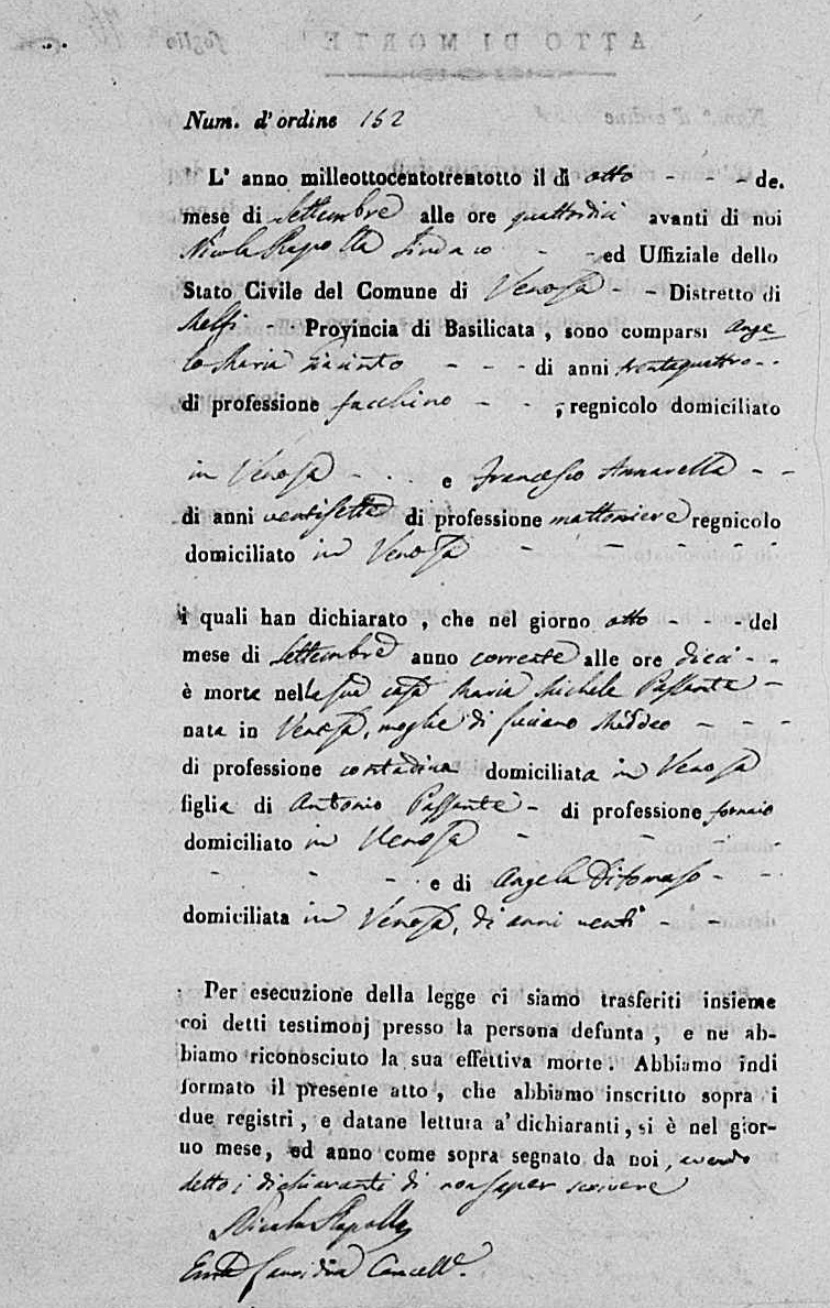 ATTO DI MORTE
foglio
Num. d'ordine 162
L' anno milleottocentotrentotto il dì otto - - - de.
mese di Settembre alle ore quattordici avanti di noi
Nicola Rapolla Sindaco - - ed Uffiziale dello
Stato Civile del Comune di Venosa - - Distretto di
Melfi - - Provincia di Basilicata , sono comparsi Ange_
lo Maria Giacinto - - - di anni trentaquattro - -
di professione facchino - - , regnicolo domiciliato
in Venosa - . . e Francesco Annarella - -
di anni ventisette di professione mattoniere regnicolo
domiciliato in Venosa - - - -
i quali han dichiarato , che nel giorno otto - - - del
mese di Settembre anno corrente alle ore dieci - -
è morta nella sua casa Maria Michele Passante -
nata in Venosa, moglie di - - -
di professione contadina domiciliata in Venosa
figlia di Antonio Passante - di professione fornaio
domiciliato in Venosa - - - -
- - - e di Angela Ditomaso - -
domiciliata in Venosa, di anni venti - -
Per esecuzione della legge ci siamo trasferiti insieme
coi detti testimonj presso la persona defunta , e ne ab-
biamo riconosciuto la sua effettiva morte. Abbiamo indi
formato il presente atto , che abbiamo inscritto sopra i
due registri , e datane lettura a' dichiaranti , si è nel gior-
no mese, ed anno come sopra segnato da noi, avendo
detto i dichiaranti di non saper scrivere
Nicola Rapolla
Cancell.